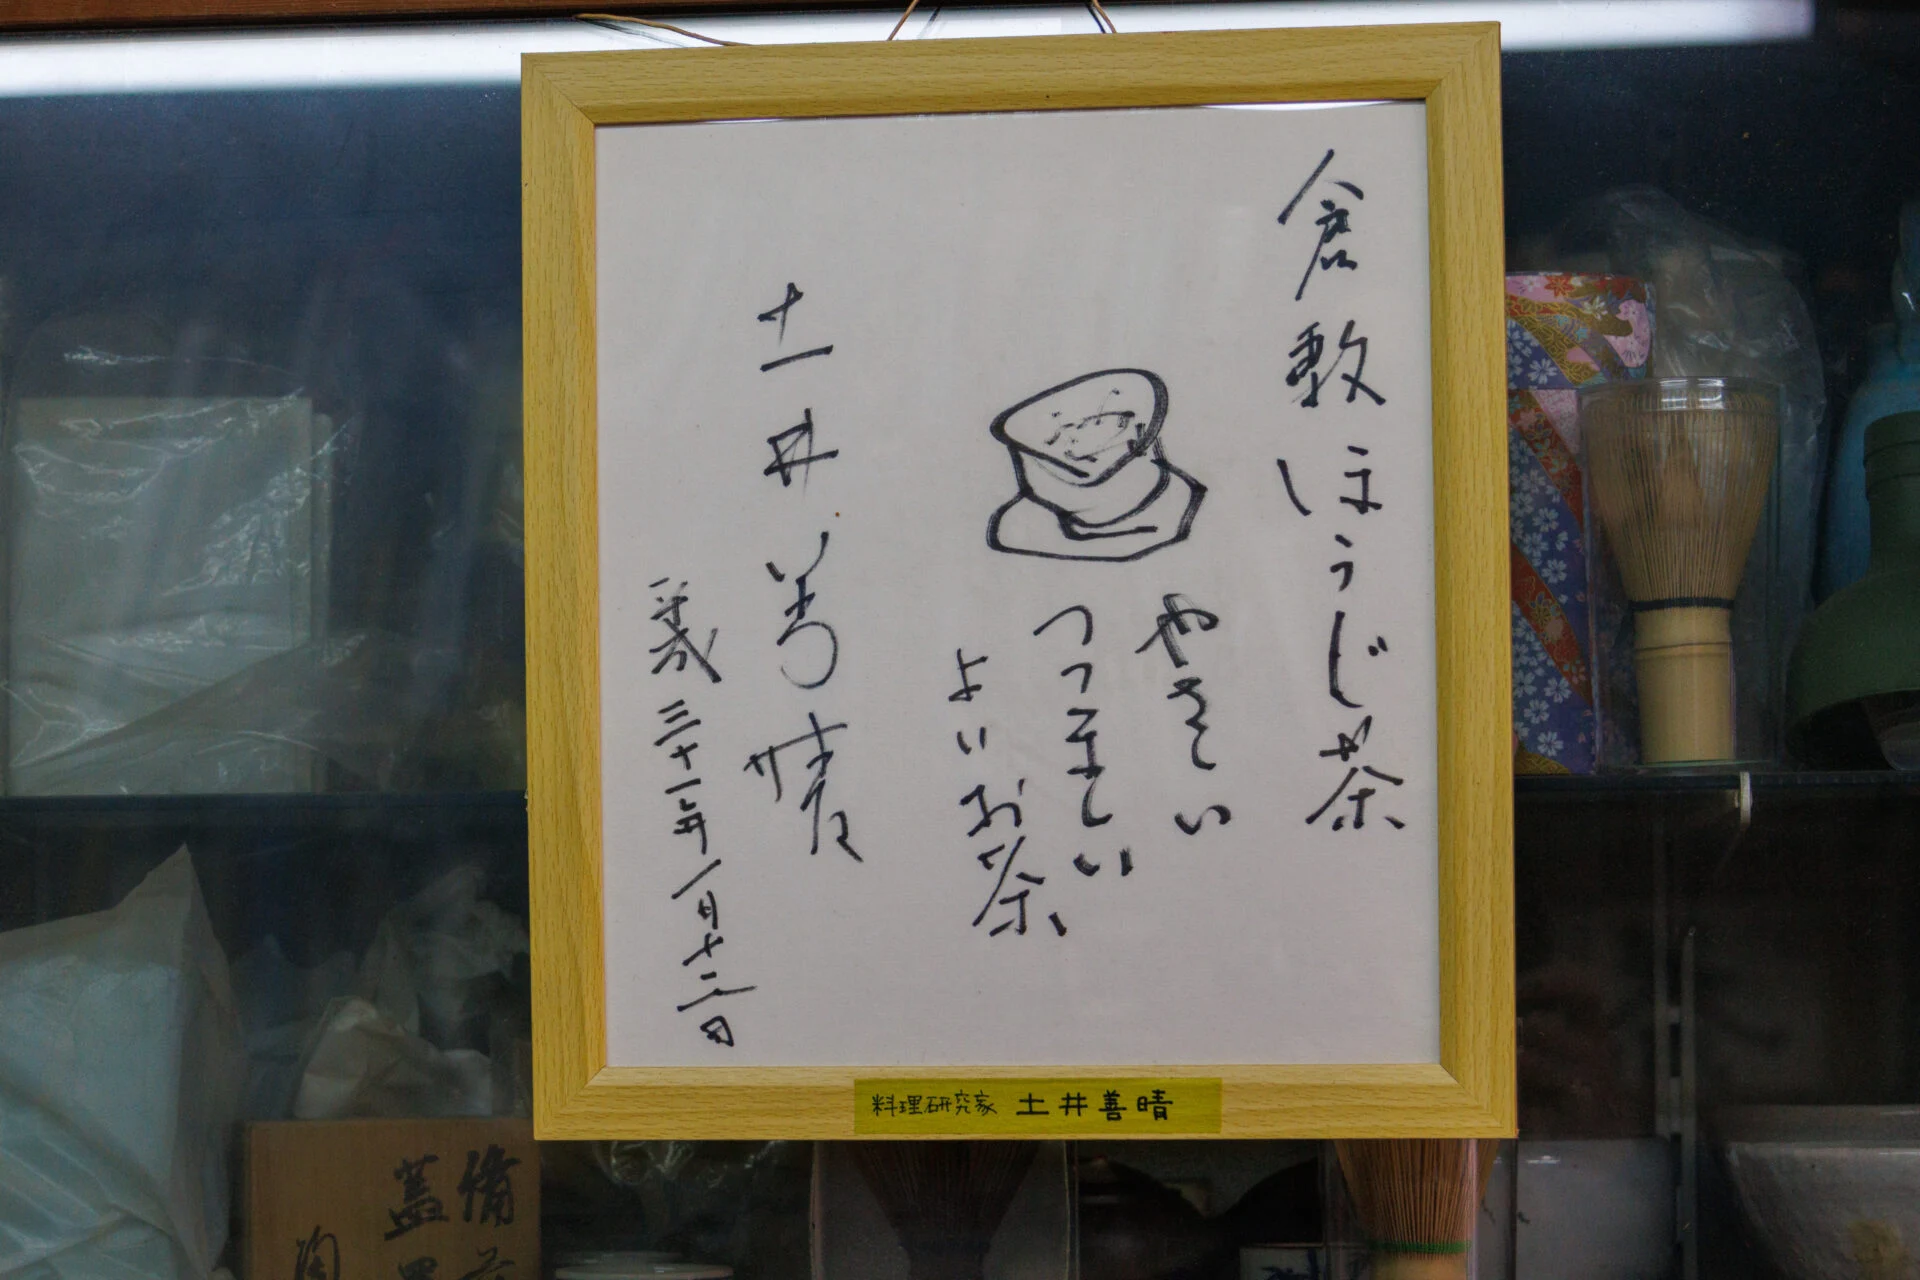 倉敷ほうじ茶
やさしい
つつましい
よいお茶
土井善晴
平成三十一年一月十二日
料理研究家 土井善晴
備
蓋
陶